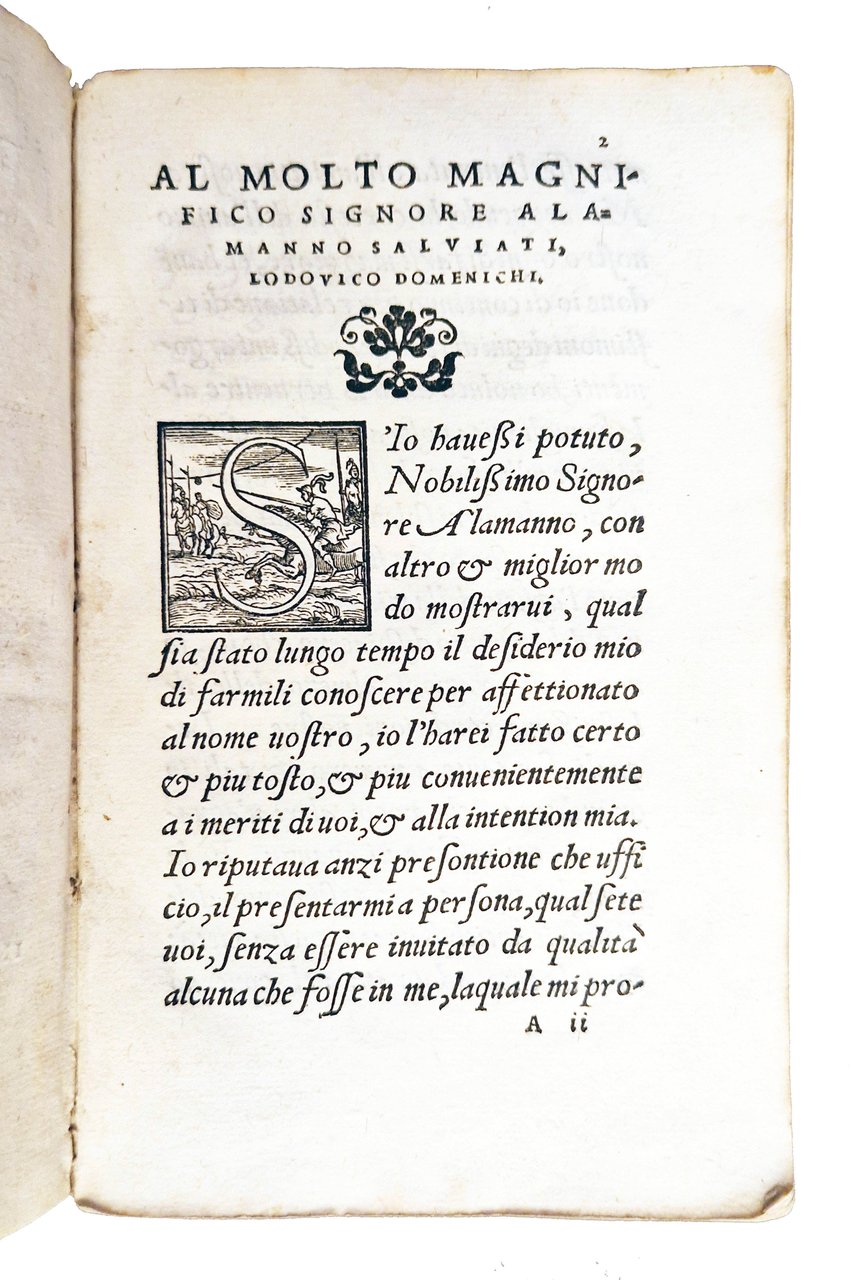 2
AL MOLTO MAGNI-
FICO SIGNORE ALA=
MANNO SALVIATI,
LODOVICO DOMENICHI.
S'Io haueßi potuto,
Nobilißimo Signo-
re Alamanno, con
altro & miglior mo
do moſtrarui, qual
ſia ſtato lungo tempo il deſiderio mio
di farmili conoſcere per affettionato
al nome uoſtro, io l'harei fatto certo
& piu toſto, & piu conuenientemente
a i meriti di uoi, & alla intention mia.
Io riputaua anzi preſontione che uffi
cio, il preſentarmi a perſona, qual ſete
uoi, ſenza eſſere inuitato da qualità
alcuna che foſſe in me, laquale mi pro-
A ii